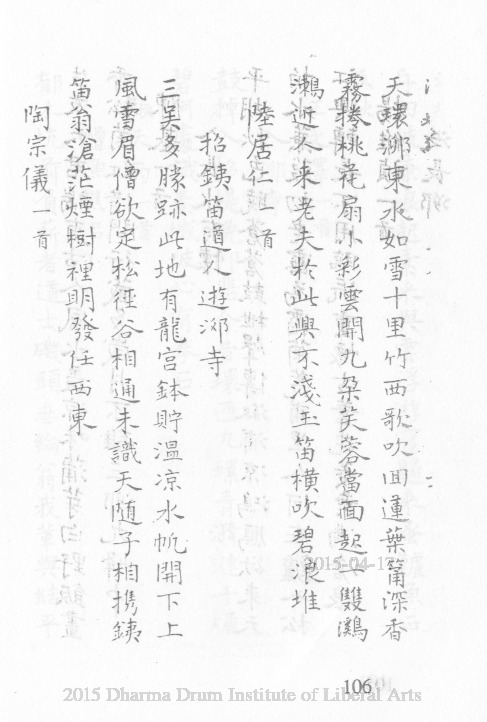 天環泖東水如雪十里竹西歌吹回蓮葉筩深香
霧捲桃花扇小彩雲開九朵芙蓉當面起一雙鸂
鶒近人来老夫於此興不淺玉笛橫吹碧浪堆
陸居仁一首
招銕笛道人遊泖寺
三吴多勝跡此地有龍宫鉢貯溫凉水帆開下上
風雪眉僧欲定松徑谷相通未識天随子相携銕
笛翁滄茫煙樹裡明發任西東
陶宗儀一首
2015-04-17
106
2015 Dharma Drum Institute of Liberal Arts